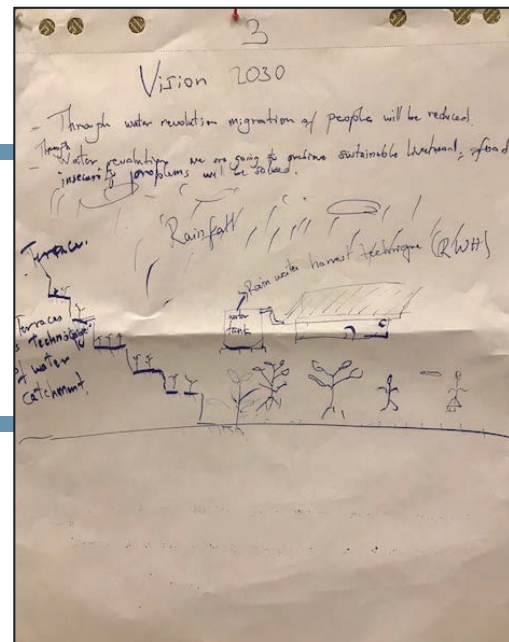 3
Vision 2030
- Through water revolution migration of people will be reduced.
Through
- Water revolution we are going to sustainable food
insecurity problems will be solved.
Rainfall
Rain water harvest technique (RWH)
Terraces.
water
tank
Terraces
technology
water
catchment.